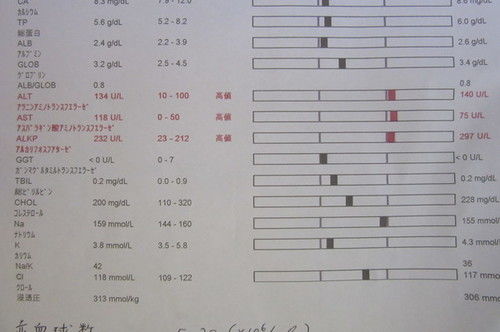 CA 8.6 mg/dL 7.9 - 12.0
ｶﾙｼｳﾑ
TP 5.6 g/dL 5.2 - 8.2 6.0 g/dL
総蛋白
ALB 2.4 g/dL 2.2 - 3.9 2.6 g/dL
ｱﾙﾌﾞﾐﾝ
GLOB 3.2 g/dL 2.5 - 4.5 3.4 g/dL
ｸﾞﾛﾌﾞﾘﾝ
ALB/GLOB 0.8 0.8
ALT 134 U/L 10 - 100 高値 140 U/L
ｱﾗﾆﾝｱﾐﾉﾄﾗﾝｽﾌｴﾗｰｾﾞ
AST 118 U/L 0 - 50 高値 75 U/L
ｱｽﾊﾟﾗｷﾞﾝ酸ｱﾐﾉﾄﾗﾝｽﾌｴﾗｰｾﾞ
ALKP 232 U/L 23 - 212 高値 297 U/L
ｱﾙｶﾘﾎｽﾌｱﾀｰｾﾞ
GGT < 0 U/L 0 - 7 < 0 U/L
ｶﾞﾝﾏｸﾞﾙﾀﾐﾙﾄﾗﾝｽﾌｴﾗｰｾﾞ
TBIL 0.2 mg/dL 0.0 - 0.9 0.2 mg/dL
総ﾋﾞﾘﾙﾋﾞﾝ
CHOL 200 mg/dL 110 - 320 228 mg/dL
ｺﾚｽﾃﾛｰﾙ
Na 159 mmol/L 144 - 160 155 mmol
ﾅﾄﾘｳﾑ
K 3.8 mmol/L 3.5 - 5.8 4.3 mmol
ｶﾘｳﾑ
Na/K 42 36
Cl 118 mmol/L 109 - 122 117 mmo
ｸﾛｰﾙ
浸透圧 313 mmol/kg 306 mmo
赤血球数